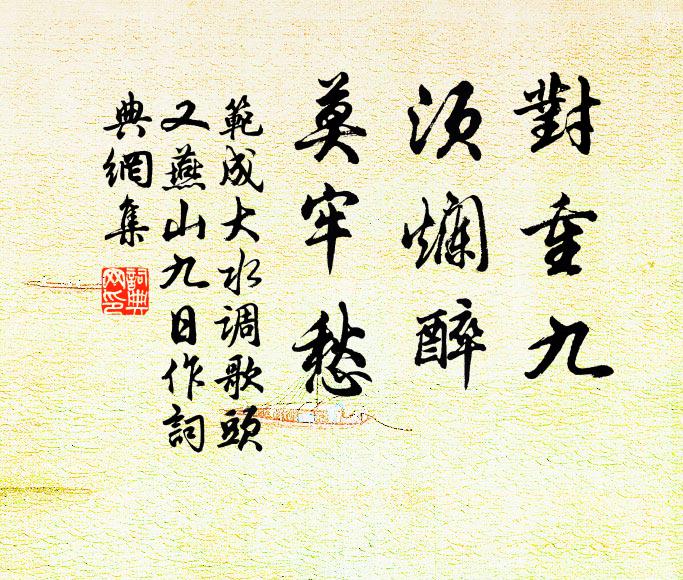 對重九
須爛醉
莫牢愁
範成大水调歌頭
又燕山九日作詞
典網集
詞典
网印